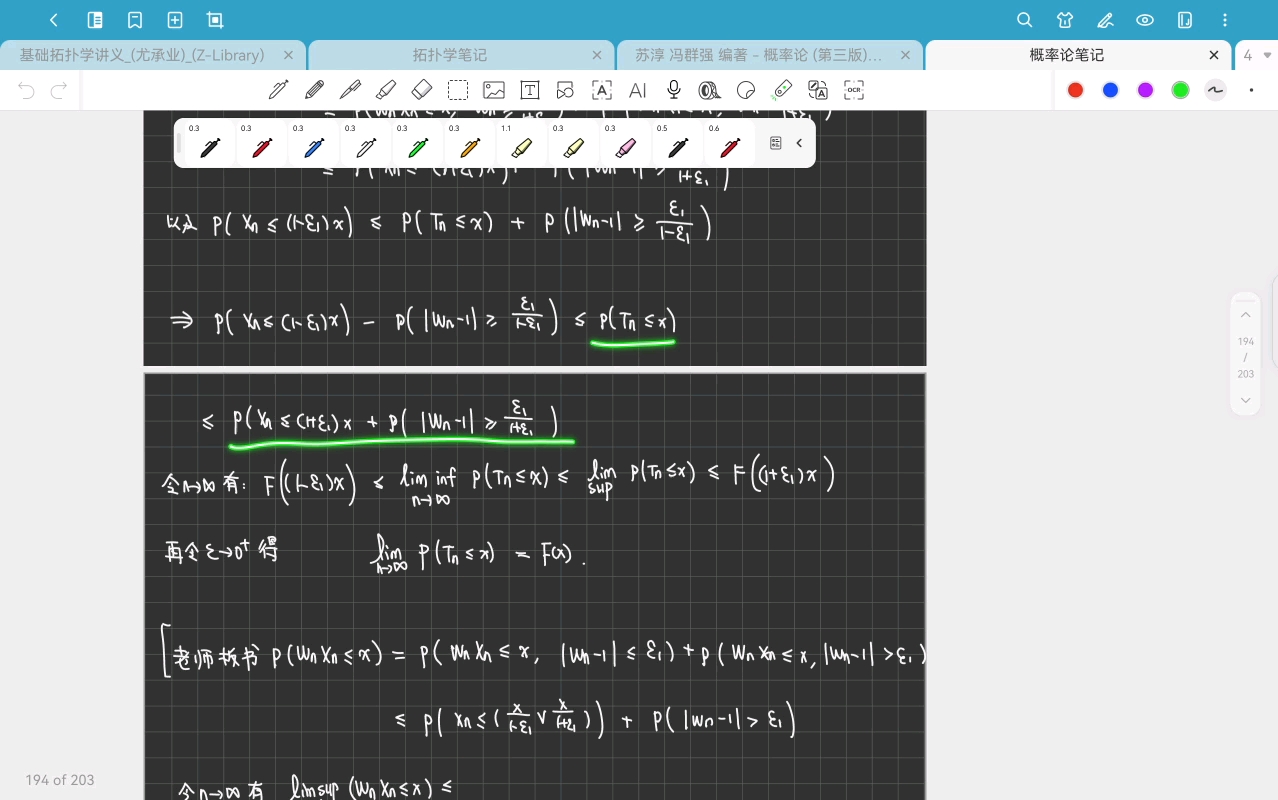 基础拓扑学讲义_(尤承业)_(Z-Library) × 拓扑学笔记 × 苏淳 冯群强 编著 - 概率论 (第三版)... × 概率论笔记 × 4
T A AI OCR
0.3 0.3 0.3 0.3 0.3 0.3 1.1 0.3 0.3 0.5 0.6
以及 P( Xn ≤ (1-ε₁)x ) ≤ P( Tn ≤ x ) + P( |Wn-1| ≥ ε₁/(1-ε₁) )
⇒ P( Xn ≤ (1-ε₁)x ) - P( |Wn-1| ≥ ε₁/(1-ε₁) ) ≤ P(Tn ≤ x)
≤ P( Xn ≤ (1+ε₁)x + P( |Wn-1| ≥ ε₁/(1+ε₁) )
令n→∞ 有: F((1-ε₁)x) ≤ lim inf n→∞ P(Tn ≤ x) ≤ lim sup P(Tn ≤ x) ≤ F((1+ε₁)x)
再令 ε→0⁺ 得 lim n→∞ P(Tn ≤ x) = F(x).
[老师板书 P(Wn Xn ≤ x) = P( Wn Xn ≤ x, |Wn-1| ≤ ε₁) + P( Wn Xn ≤ x, |Wn-1| > ε₁)
≤ P( Xn ≤ ( x/(1-ε₁) ∨ x/(1+ε₁) ) ) + P( |Wn-1| > ε₁ )
令n→∞ 有 limsup (Wn Xn ≤ x) ≤
194
/
203
194 of 203